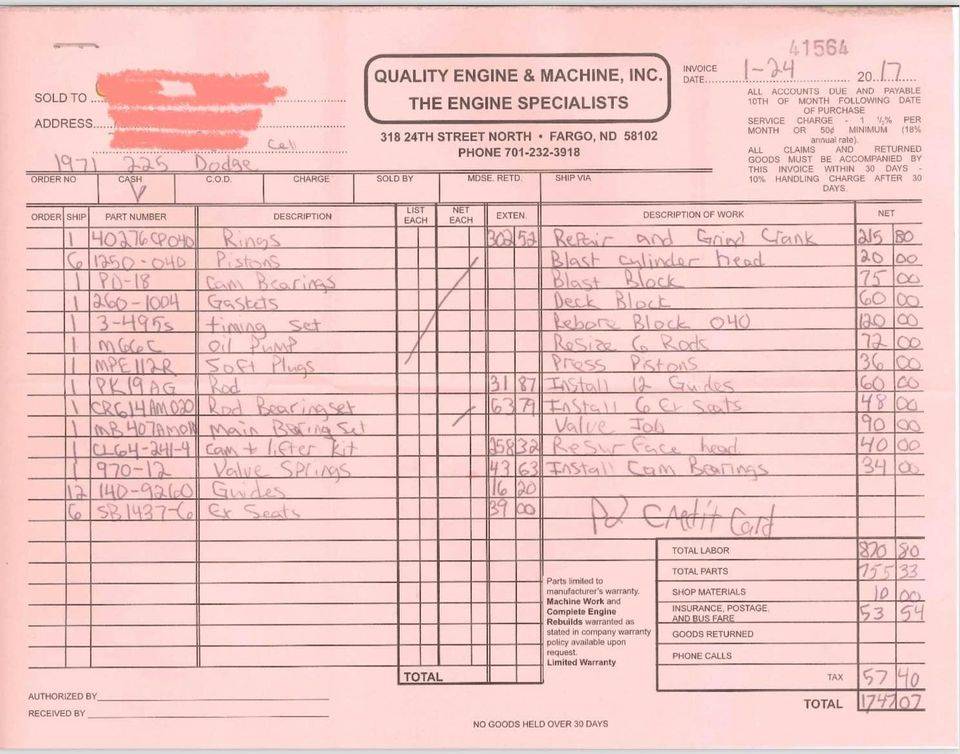 41564
QUALITY ENGINE & MACHINE, INC.
THE ENGINE SPECIALISTS
318 24TH STREET NORTH • FARGO, ND 58102
PHONE 701-232-3918
INVOICE DATE 1-24 2017
ALL ACCOUNTS DUE AND PAYABLE
10TH OF MONTH FOLLOWING DATE
OF PURCHASE
SERVICE CHARGE - 1 ½% PER
MONTH OR 50¢ MINIMUM (18%
annual rate).
ALL CLAIMS AND RETURNED
GOODS MUST BE ACCOMPANIED BY
THIS INVOICE WITHIN 30 DAYS -
10% HANDLING CHARGE AFTER 30
DAYS.
SOLD TO
ADDRESS
Cell
1971 225 Dodge
ORDER NO CASH C.O.D. CHARGE SOLD BY MDSE. RETD. SHIP VIA
ORDER SHIP PART NUMBER DESCRIPTION LIST EACH NET EACH EXTEN. DESCRIPTION OF WORK NET
1 40276CP040 Rings 302 52 Repair and Grind Crank 215 80
6 1250-040 Pistons Blast cylinder head 20 00
1 PD-18 Cam Bearings Blast Block 75 00
1 260-1004 Gaskets Deck Block 60 00
1 3-495s timing set Rebore Block 040 120 00
1 M66C Oil Pump ReSize 6 Rods 72 00
1 MPE112R Soft Plugs Press Pistons 36 00
1 PK19AG Rod 31 87 Install 12 Guides 60 00
1 CR614AM020 Rod Bearing set 63 79 Install 6 Ex Seats 48 00
1 Main Bearing Set Valve Job 90 00
1 CL64-241-4 Cam + lifter kit 258 32 ReSurFace head 40 00
1 970-12 Valve Springs 43 63 Install Cam Bearings 34 00
12 140-9260 Guides 16 20
6 SB1437-6 Ex Seats 39 00
Pd Credit Card
TOTAL LABOR 870 80
TOTAL PARTS 755 33
SHOP MATERIALS 10 00
INSURANCE, POSTAGE, AND BUS FARE 53 54
GOODS RETURNED
PHONE CALLS
TAX 57 40
TOTAL 1747 07
Parts limited to
manufacturer's warranty.
Machine Work and
Complete Engine
Rebuilds warranted as
stated in company warranty
policy available upon
request.
Limited Warranty
TOTAL
AUTHORIZED BY
RECEIVED BY
NO GOODS HELD OVER 30 DAYS